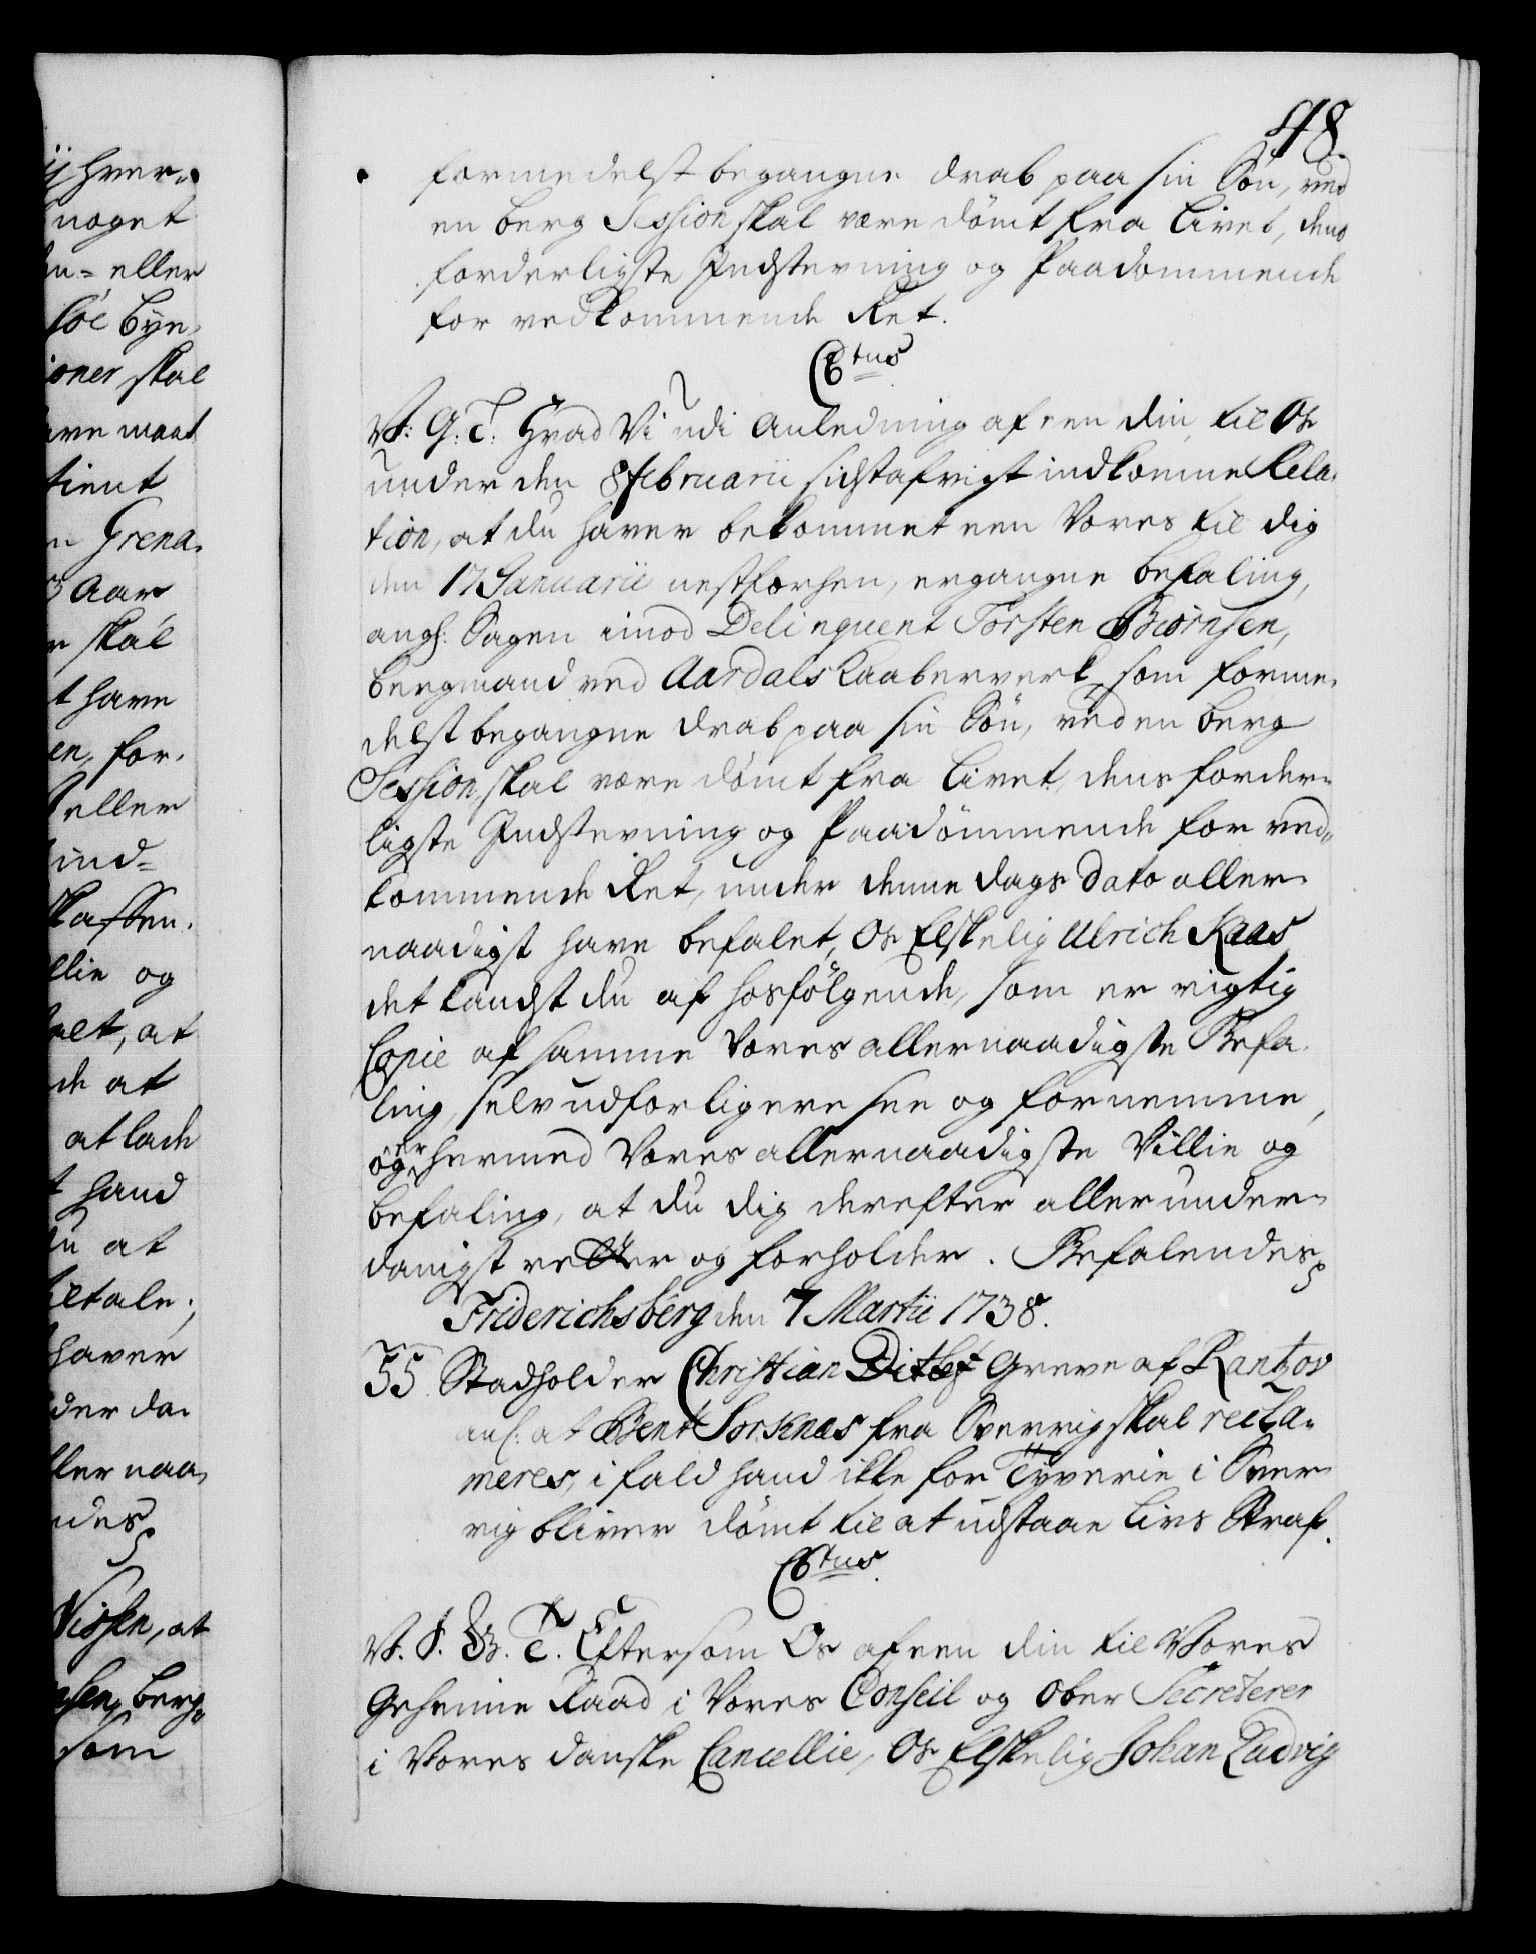 48.
formedelst begangne drab paa sin Søn, ved
en berg Session skal være dömt fra Livet, dens
forderligste Indstevning og Paadömmende
for vedkommende Ret.
C6tus
V: G: T: Hvad Vi udi Anledning af een din til Os
under den 8 Februarii sidstafvigt indkomne Rela-
tion, at du haver bekommet een Vores til dig
den 17 Januarii nestforhen, ergangne befaling,
angf: Sagen imod Delinquent Torsten Biörnsen,
bergmand ved Aardals Kaaberverk, som forme-
delst begangne drab paa sin Sön, ved en berg
Session, skal være dömt fra Livet, dens forder-
ligste Indstevning og Paadömmende for ved-
kommende Ret, under denne dags Dato aller-
naadigst have befalet, Os Elskelig Ulrich Kaas
det kandst du af hosfölgende, som er rigtig
Copie af samme Vores allernaadigste Befa-
ling, selv udforligere see og fornemme,
og er hermed Vores allernaadigste Villie og
befaling, at du dig derefter allerunder-
danigst retter og forholder. Befalendes
Friderichsberg den 7 Martii 1738.
55. Stadholder Christian Ditlef Greve af Rantzov
anl: at Bent Sorknes fra Sverrig skal recla-
meres, i fald hand ikke for Tyverie i Sver-
rig bliver dömt til at udstaae Livs Straf.
C6tus.
V. S. G. T. Eftersom Os af een din til Vores
Geheime Raad i Vores Conseil og Ober Secreterer
i Vores danske Cancellie, Os Elskelig Johan Ludvig
ij hver-
noget
eller
söe Bye
ioner skal
ave maat
tient
Grena-
3 Aar
skal
t have
en, for-
eller
ind-
skaffen.
llie og
alet, at
de at
at lade
t hand
du at
betale;
haver
der da-
ller naa-
ndes
Nissen, at
nsen, berg-
som